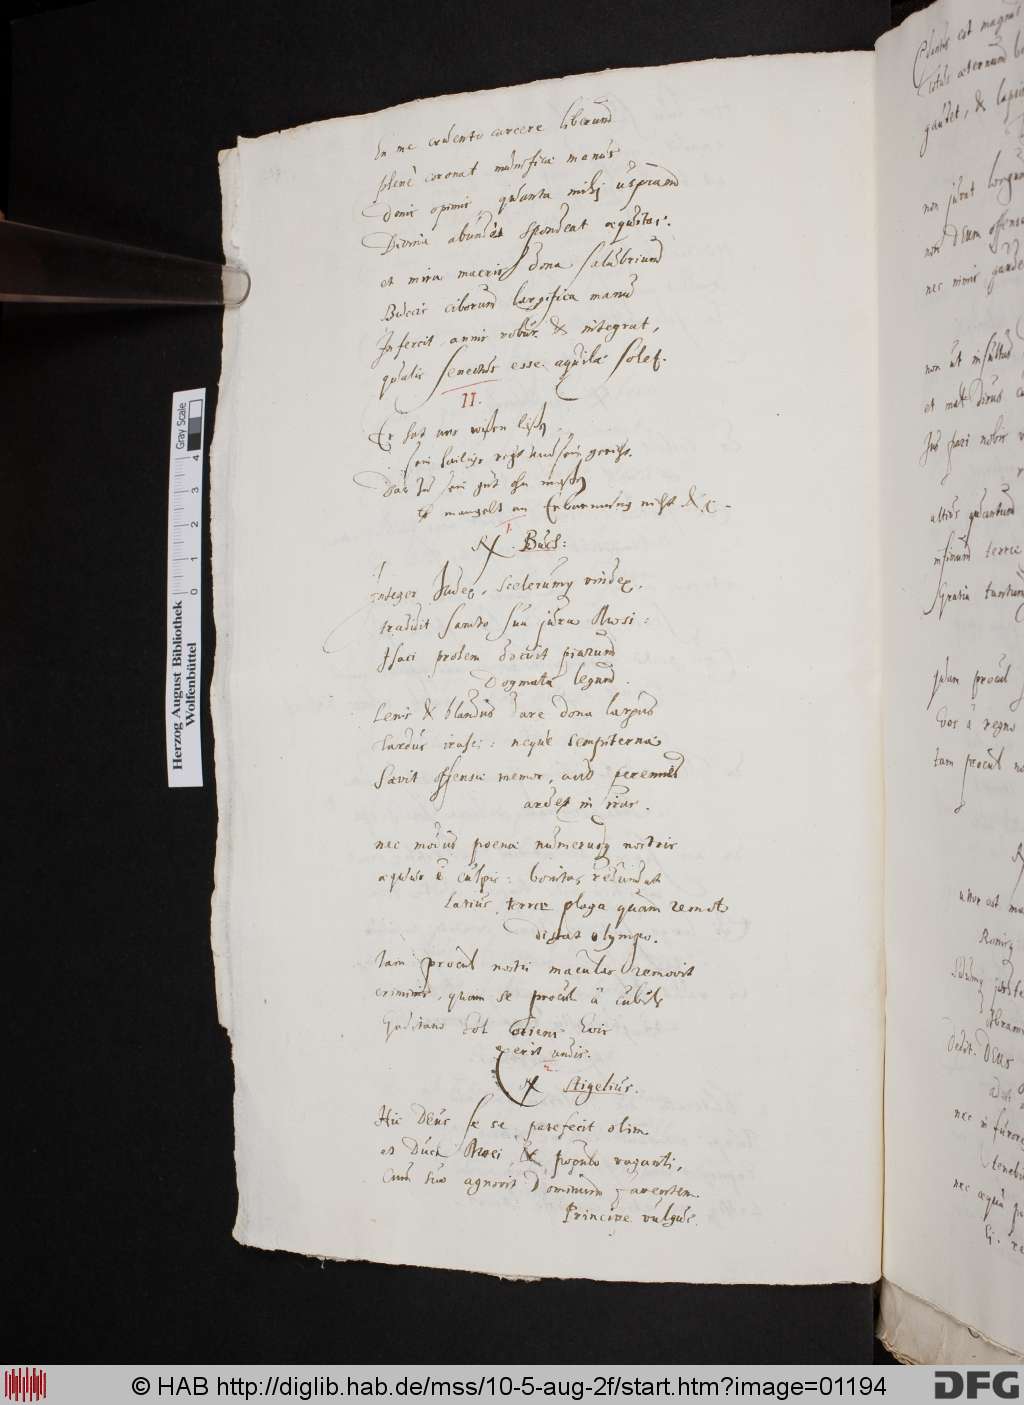 En me cruento carcere liberum
plenè coronat munifica manus
donis opimis quanta mihj uspiam
Divina abundèt spondeat æquitas:
et mira macris dona salubrium
Buccis ciborum largifica manu
Infercit, annis robur & integrat,
qualis senectus esse aquilæ solet.
II.
Er hat uns wissen lassen
sein heilige recht und sein gericht.
Dar Zu sein güt ohn massen
es mangelt an Erbarmung nicht &c -
1.
Buch:
Integer Judex, scelerumque vindex
tradidit sancto sua jura Mosi:
Isaci prolem docuit piarum
Dogmata legum.
Lenis & blandus dare dona largus
tardus irasci: neque sempiterna
Sævit offensæ memor, aut perennes
ardet in iras.
nec modus poenæ numerusque nostris
æquus è culpis: bonitas redundat
latius, terræ plaga quam remoto
distat olympo.
tam procul nostri maculas removit
criminis, quam se procul à cubili
Gaditano Sol oriens Eois
exerit undis.
2.
Stigelius.
Hic Deus se se patefecit olim
et Duci Mosi, & populo vaganti,
Cum suo agnovit Dominum faventem
Principe vulgus.
Herzog August Bibliothek
Wolfenbüttel
0 1 2 3 4
Gray Scale
© HAB http://diglib.hab.de/mss/10-5-aug-2f/start.htm?image=01194
DFG